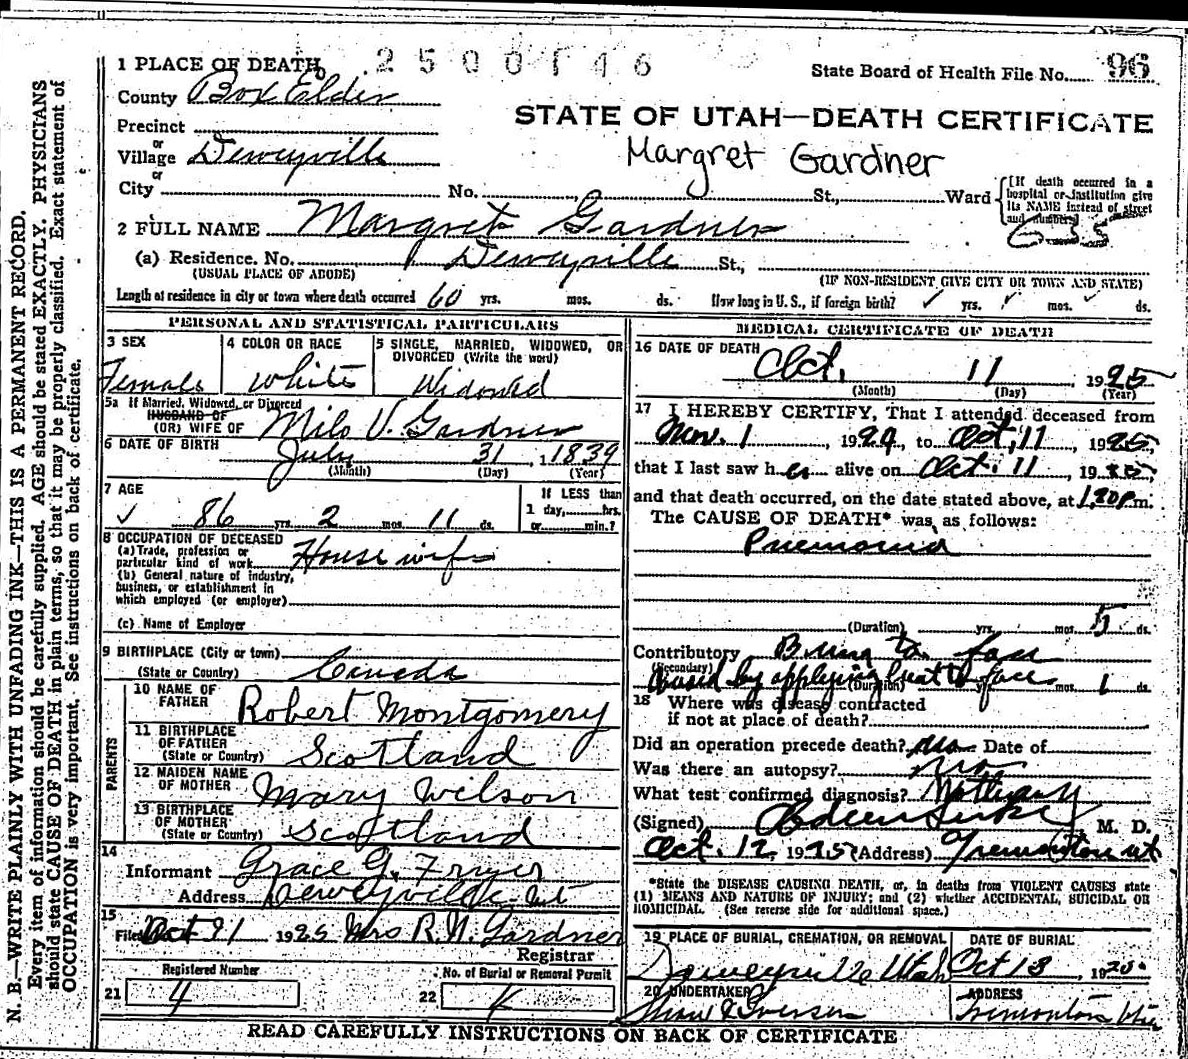 2500146
1 PLACE OF DEATH
State Board of Health File No. 96
County Box Elder
STATE OF UTAH—DEATH CERTIFICATE
Precinct
or
Village Deweyville
Margret Gardner
or
City No. St., Ward
[If death occurred in a hospital or institution give its NAME instead of street and number]
635
2 FULL NAME Margret Gardner
(a) Residence. No. Deweyville St.,
(USUAL PLACE OF ABODE) (IF NON-RESIDENT GIVE CITY OR TOWN AND STATE)
Length of residence in city or town where death occurred 60 yrs. mos. ds. How long in U.S., if foreign birth? ✓ yrs. ✓ mos. ✓ ds.
PERSONAL AND STATISTICAL PARTICULARS
3 SEX
Female
4 COLOR OR RACE
White
5 SINGLE, MARRIED, WIDOWED, OR DIVORCED (Write the word)
Widowed
5a If Married, Widowed, or Divorced
HUSBAND OF
(OR) WIFE OF Milo V. Gardner
6 DATE OF BIRTH July 31, 1839
(Month) (Day) (Year)
7 AGE
✓ 86 yrs. 2 mos. 11 ds.
If LESS than
1 day, hrs.
or min.?
8 OCCUPATION OF DECEASED
(a) Trade, profession or
particular kind of work House wife
(b) General nature of industry,
business, or establishment in
which employed (or employer)
(c) Name of Employer
9 BIRTHPLACE (City or town)
(State or Country) Canada
PARENTS
10 NAME OF
FATHER Robert Montgomery
11 BIRTHPLACE
OF FATHER
(State or Country) Scotland
12 MAIDEN NAME
OF MOTHER Mary Wilson
13 BIRTHPLACE
OF MOTHER
(State or Country) Scotland
14
Informant Grace G. Fryer
Address Deweyville, Ut
15
Filed Oct 21 1925 Mrs R. N. Gardner
Registrar
Registered Number
21 4
No. of Burial or Removal Permit
22
MEDICAL CERTIFICATE OF DEATH
16 DATE OF DEATH
Oct. 11 1925
(Month) (Day) (Year)
17 I HEREBY CERTIFY, That I attended deceased from
Nov. 1, 1924, to Oct, 11 1925,
that I last saw her alive on Oct. 11 1925,
and that death occurred, on the date stated above, at 1.20 p m.
The CAUSE OF DEATH* was as follows:
Pnemonia
(Duration) yrs. mos. 5 ds.
Contributory Burn to face
(Secondary) Caused by applying heat to face
(Duration) yrs. mos. 1 ds.
18 Where was disease contracted
if not at place of death?
Did an operation precede death? no Date of
Was there an autopsy? no
What test confirmed diagnosis?
(Signed) M. D.
Oct. 12, 1925 (Address) Tremonton Ut
*State the DISEASE CAUSING DEATH, or, in deaths from VIOLENT CAUSES state
(1) MEANS AND NATURE OF INJURY; and (2) whether ACCIDENTAL, SUICIDAL OR
HOMICIDAL. (See reverse side for additional space.)
19 PLACE OF BURIAL, CREMATION, OR REMOVAL
Deweyville Utah
DATE OF BURIAL
Oct 13, 192
20 UNDERTAKER
ADDRESS
Tremonton
READ CAREFULLY INSTRUCTIONS ON BACK OF CERTIFICATE
N. B.—WRITE PLAINLY WITH UNFADING INK—THIS IS A PERMANENT RECORD.
Every item of information should be carefully supplied. AGE should be stated EXACTLY. PHYSICIANS
should state CAUSE OF DEATH in plain terms, so that it may be properly classified. Exact statement of
OCCUPATION is very important. See instructions on back of certificate.